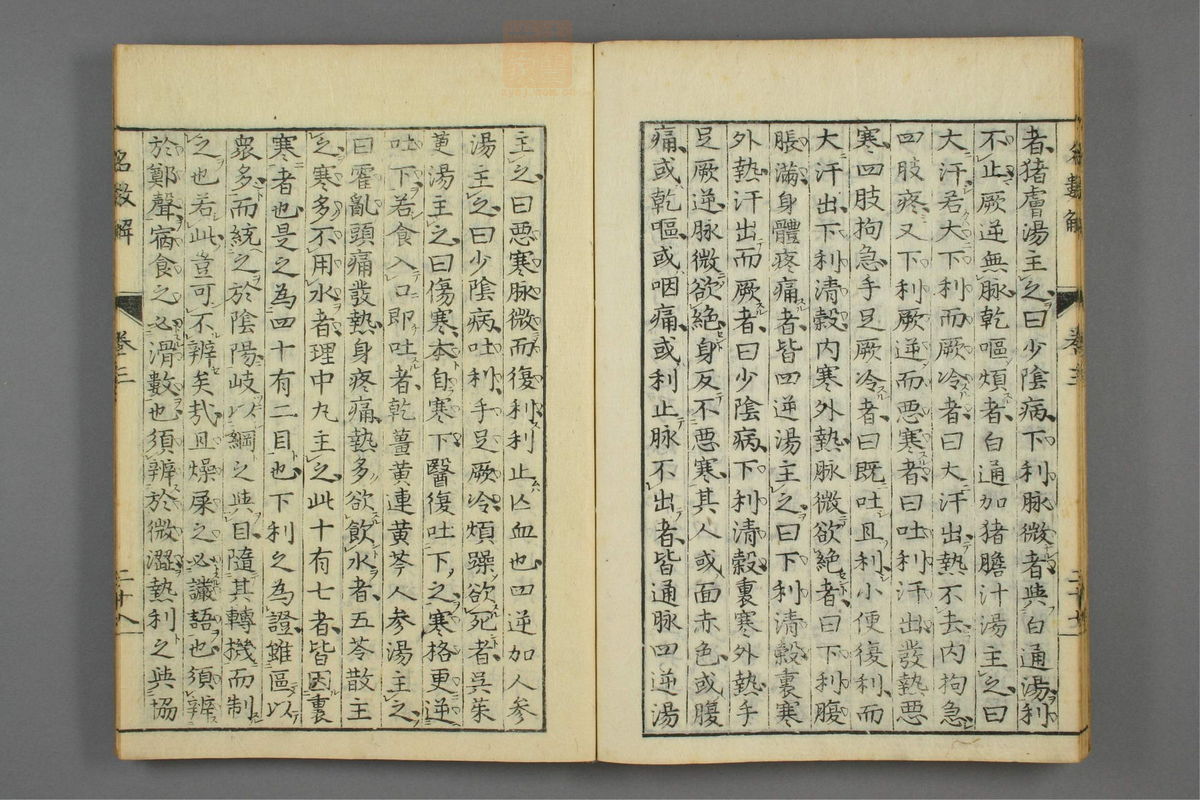 者猪膚湯主之曰少陰病下利脉微者與白通湯利
不止厥逆無脉乾嘔煩者白通加猪膽汁湯主之曰
大汗若大下利而厥冷者曰大汗出熱不去内拘急
四肢疼又下利厥逆而惡寒者曰吐利汗出發熱惡
寒四肢拘急手足厥冷者曰既吐且利小便復利而
大汗出下利清穀内寒外熱脉微欲絶者曰下利腹
脹滿身體疼痛者皆四逆湯主之曰下利清穀裏寒
外熱汗出而厥者曰少陰病下利清穀裏寒外熱手
足厥逆脉微欲絶身反不惡寒其人或面赤色或腹
痛或乾嘔或咽痛或利止脉不出者皆通脉四逆湯
主之曰惡寒脉微而復利利止亾血也四逆加人参
湯主之曰少陰病吐利手足厥冷煩躁欲死者呉茱
萸湯主之曰傷寒本自寒下醫復吐下之寒格更逆
吐下若食入口即吐者乾薑黄連黄芩人参湯主之
曰霍亂頭痛發熱身疼痛熱多欲飲水者五苓散主
之寒多不用水者理中丸主之此十有七者皆因裏
寒者也是之為四十有二目也下利之為證雖區以
衆多而統之於陰陽岐以綱之與目隨其轉機而制
之也若此豈可不辨矣哉且燥屎之必讝語也須辨
於鄭聲宿食之必滑數也須辨於微澀熱利之與協
名數解
卷三
二十八